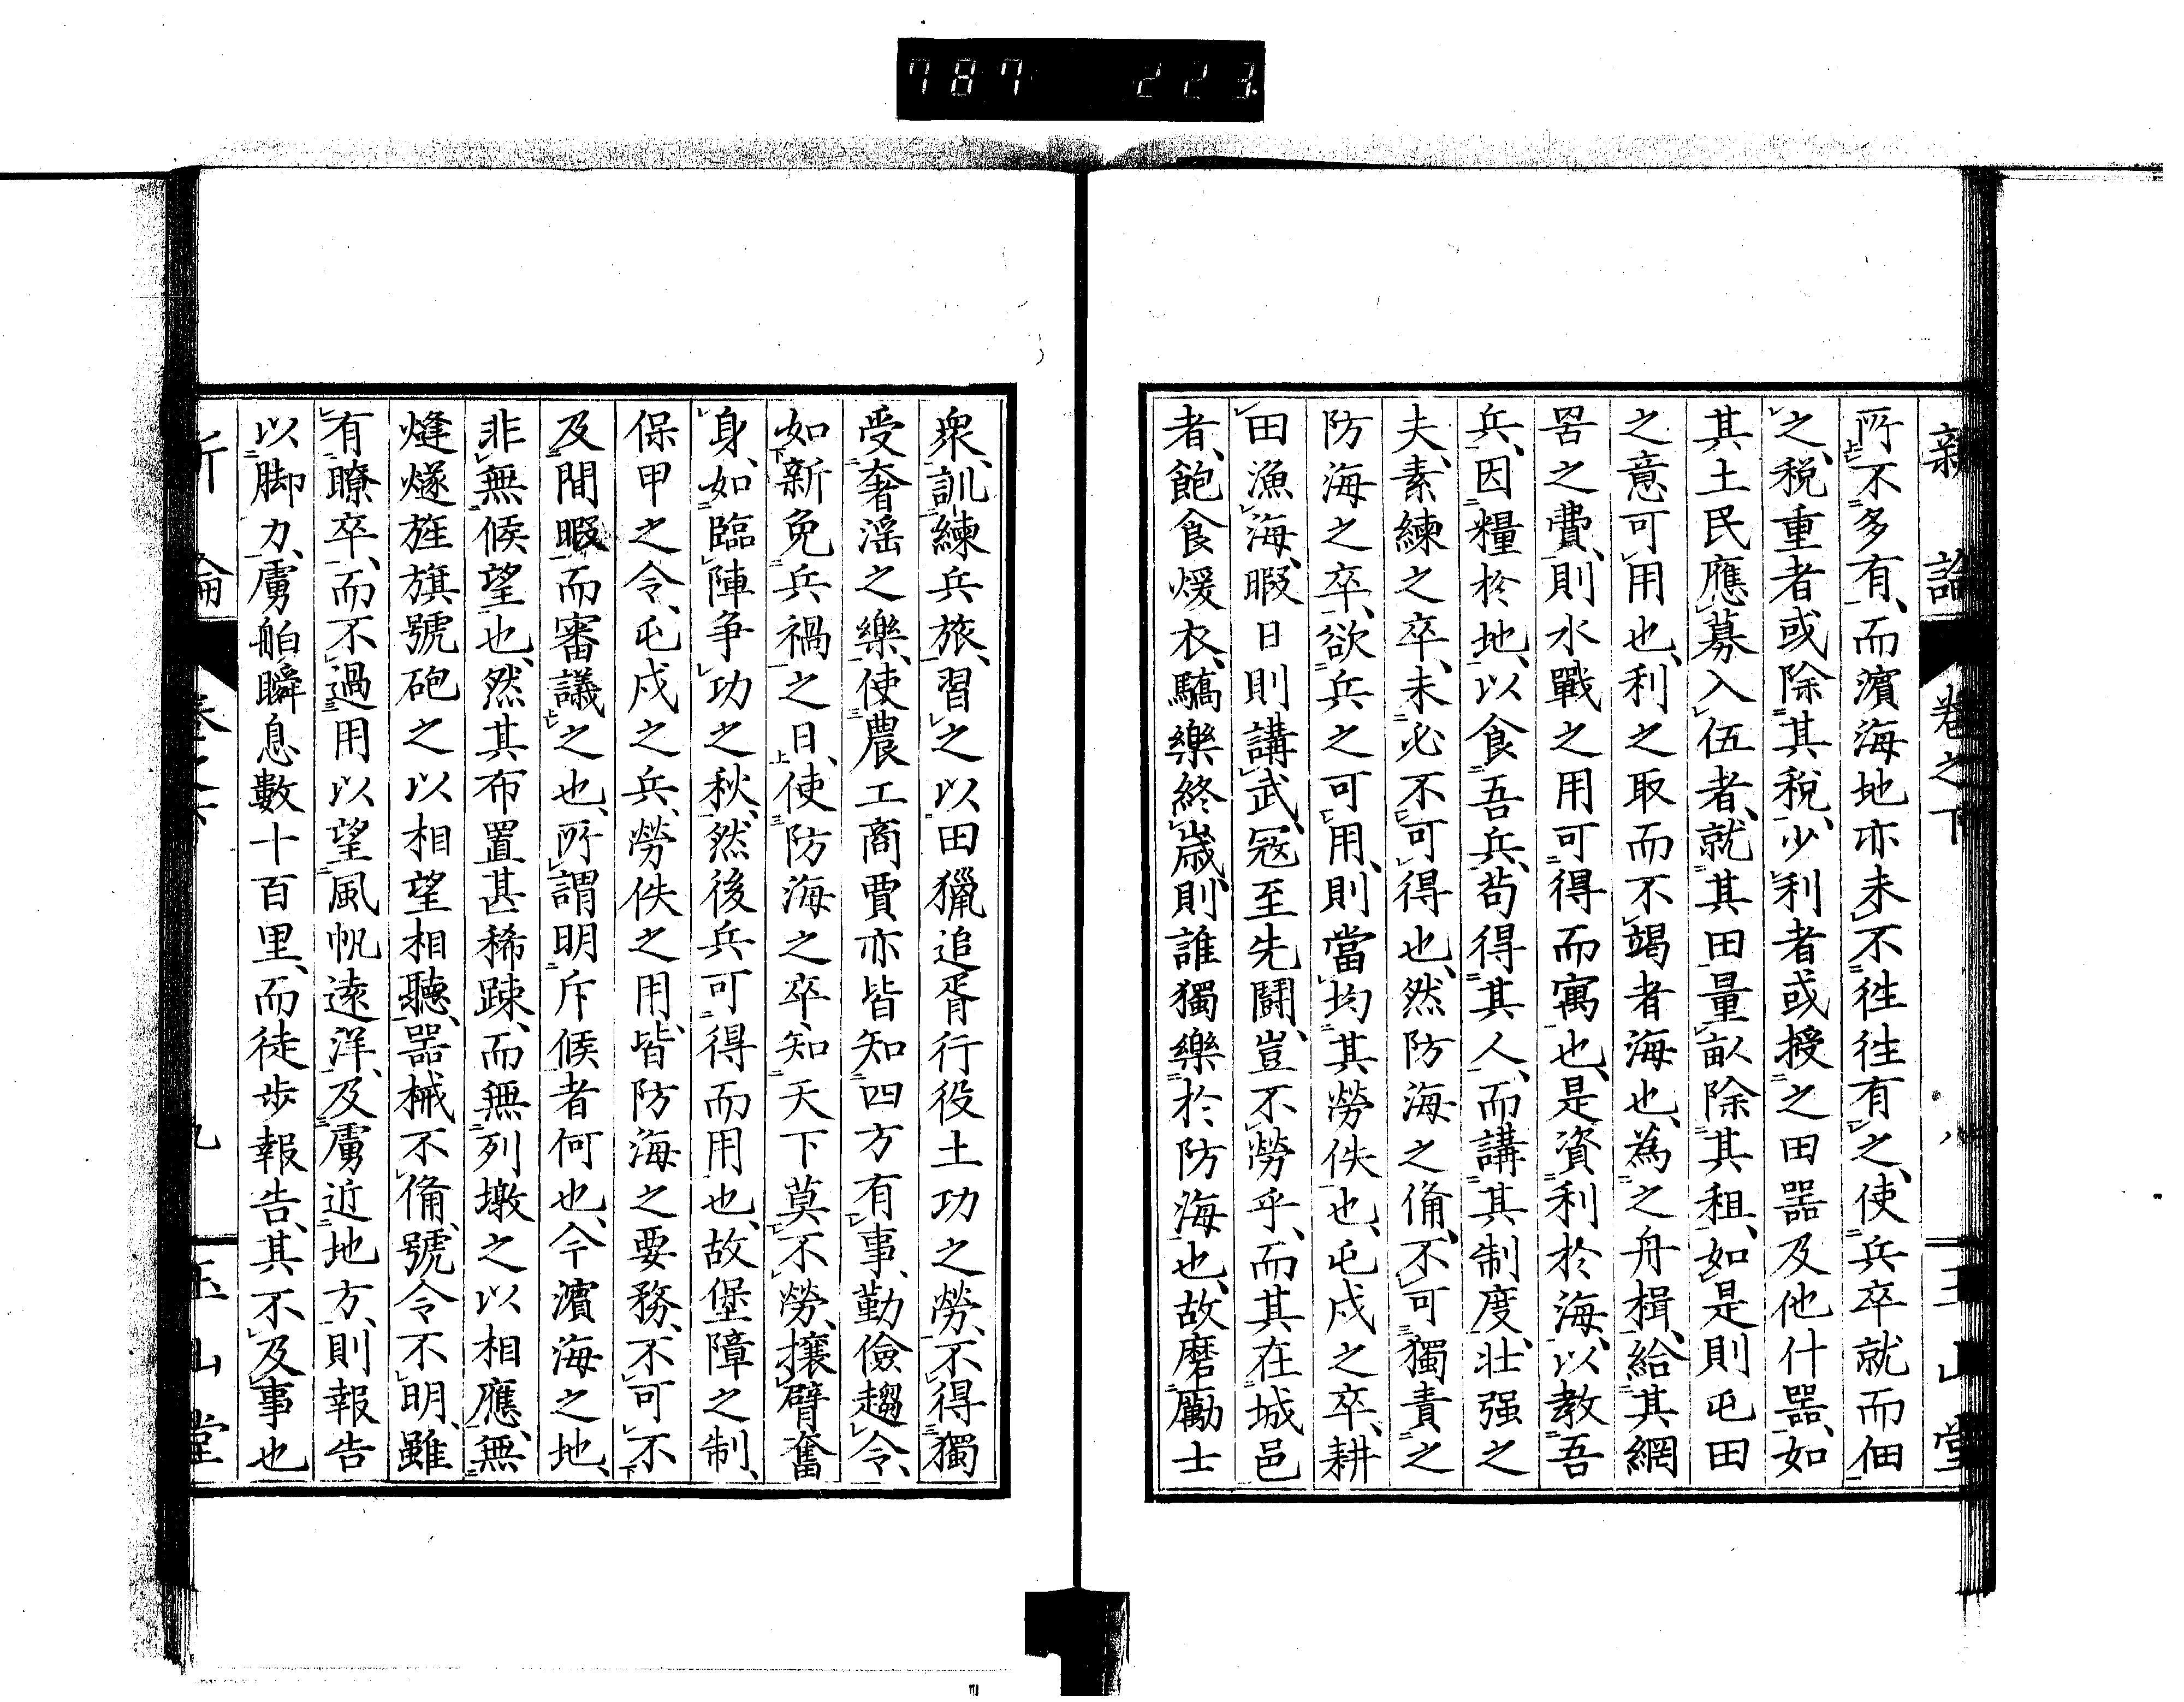 787 223
新論 卷之下 八 玉山堂
所不多有、而濵海地亦未不徃徃有之、使兵卒就而佃
之、税重者或除其税、少利者或授之田器及他什器、如
其土民應募入伍者、就其田量畝除其租、如是則屯田
之意可用也、利之取而不竭者海也、為之舟楫、給其網
罟之費、則水戰之用可得而寓也、是資利於海、以教吾
兵、因糧於地、以食吾兵、苟得其人、而講其制度、壮强之
夫、素練之卒、未必不可得也、然防海之俻、不可獨責之
防海之卒、欲兵之可用、則當均其勞佚也、屯戍之卒、耕
田漁海、暇日則講武、冦至先鬪、豈不勞乎、而其在城邑
者、飽食煖衣、驕樂終歳、則誰獨樂於防海也、故磨勵士
衆、訓練兵旅、習之以田獵追胥行役土功之勞、不得獨
受奢滛之樂、使農工商賈亦皆知四方有事、勤儉趨令、
如新免兵禍之日、使防海之卒、知天下莫不勞、攘臂奮
身、如臨陣争功之秋、然後兵可得而用也、故堡障之制、
保甲之令、屯戍之兵、勞佚之用、皆防海之要務、不可不
及間暇而審議之也、所謂明斥候者何也、今濵海之地、
非無候望也、然其布置甚稀踈、而無列墩之以相應、無
㷨燧旌旗號砲之以相望相聽、器械不俻、號令不明、雖
有瞭卒、而不過用以望風帆遠洋、及虜近地方、則報告
以脚力、虜舶瞬息數十百里、而徒歩報告、其不及事也
新論 卷之下 九 玉山堂